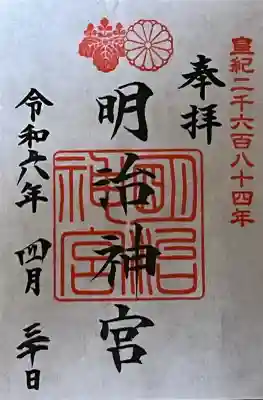 皇紀二千六百八十四年
奉拝
明治神宮
明治
神宮
令和六年 四月 三十日